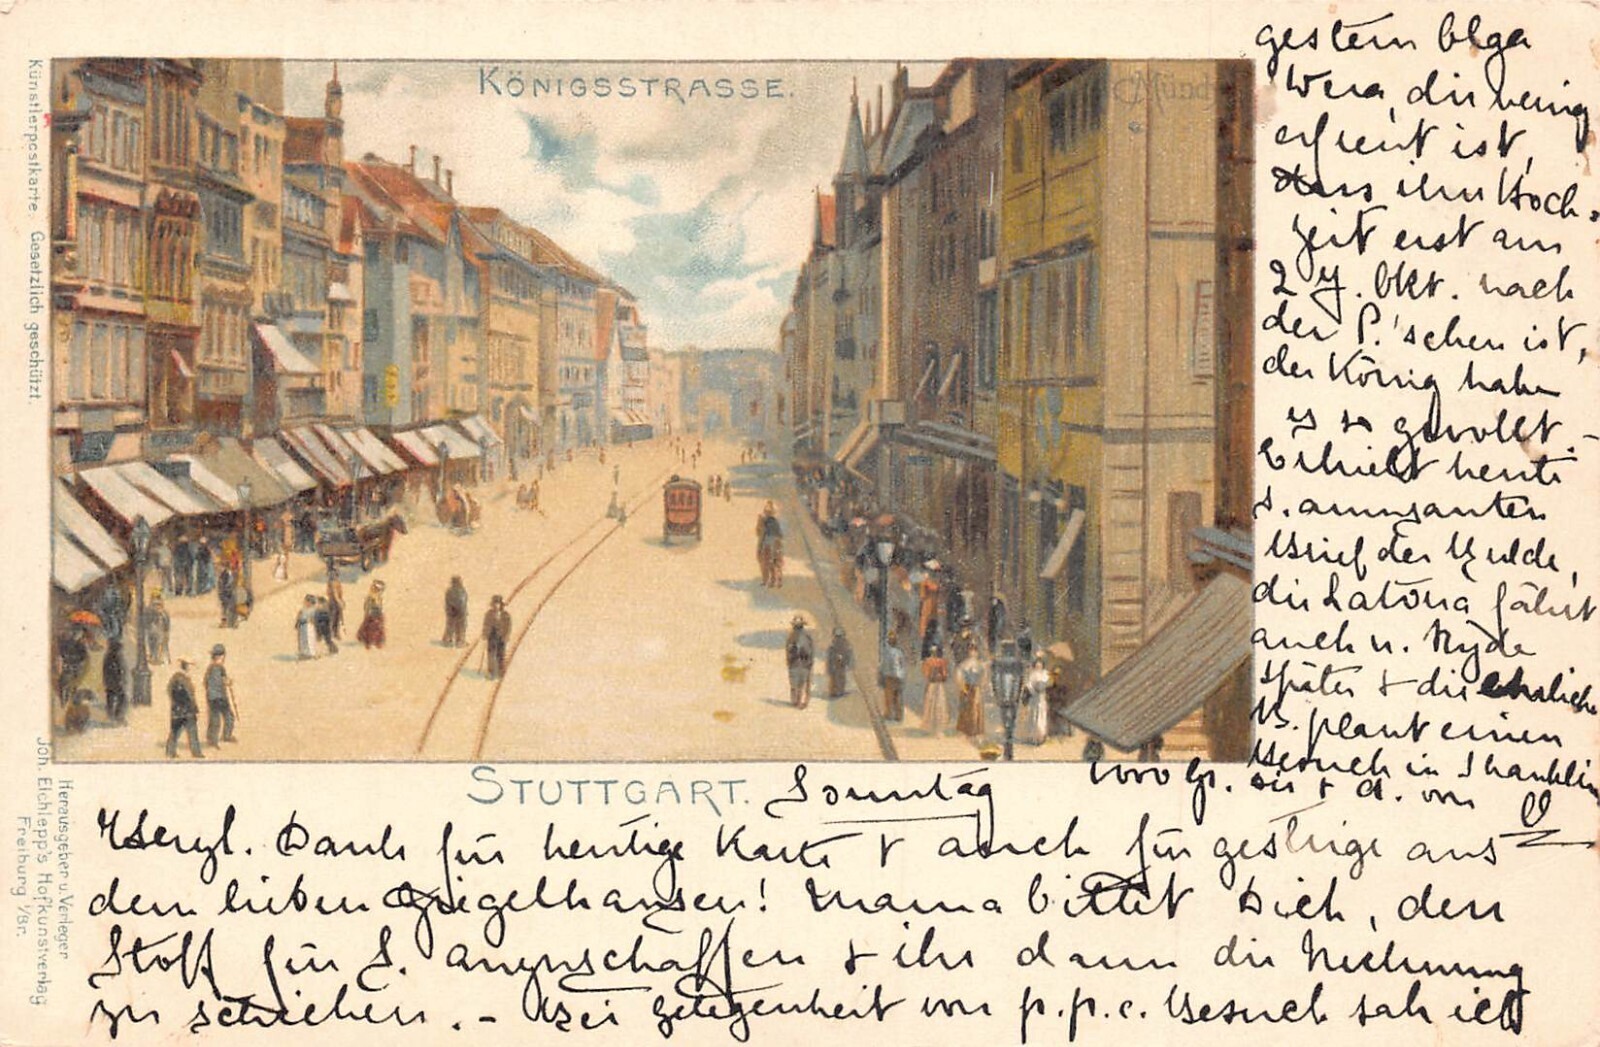 KÖNIGSSTRASSE.
STUTTGART.
Künstlerpostkarte. Gesetzlich geschützt.
Herausgeber u. Verleger
Joh. Elchlepp's Hofkunstverlag
Freiburg i/Br.
Sonntag
Herzl. Dank für heutige Karte & auch für gestrige aus
dem lieben Ziegelhausen! Mama bittet Dich, den
Stoff für S. anzuschaffen & ihr dann die Rechnung
zu schicken. – Bei Gelegenheit von p.p.c. Besuch sah ich
gestern Olga
Wera, die
ist,
dass ihre Hoch-
zeit erst am
Okt. nach
der P.'schen ist,
der König habe
es so gewollt. –
Erhielt heute
s. amusanten
Brief der
die Latona fährt
auch n. Ryde
später & die
B. plant einen
Besuch in Shanklin
1000 Gr. Dir & d. von